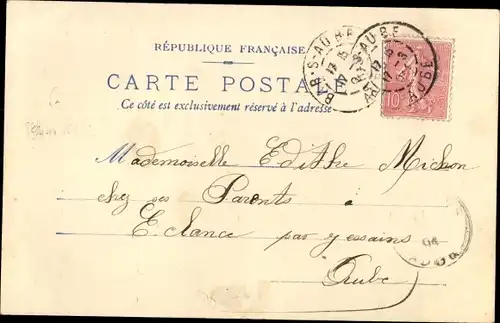 RÉPUBLIQUE FRANÇAISE
CARTE POSTALE
Ce côté est exclusivement réservé à l'adresse
10
Mademoiselle Edithe Michon
chez ses Parents
Eclance par yessains
Aube
04